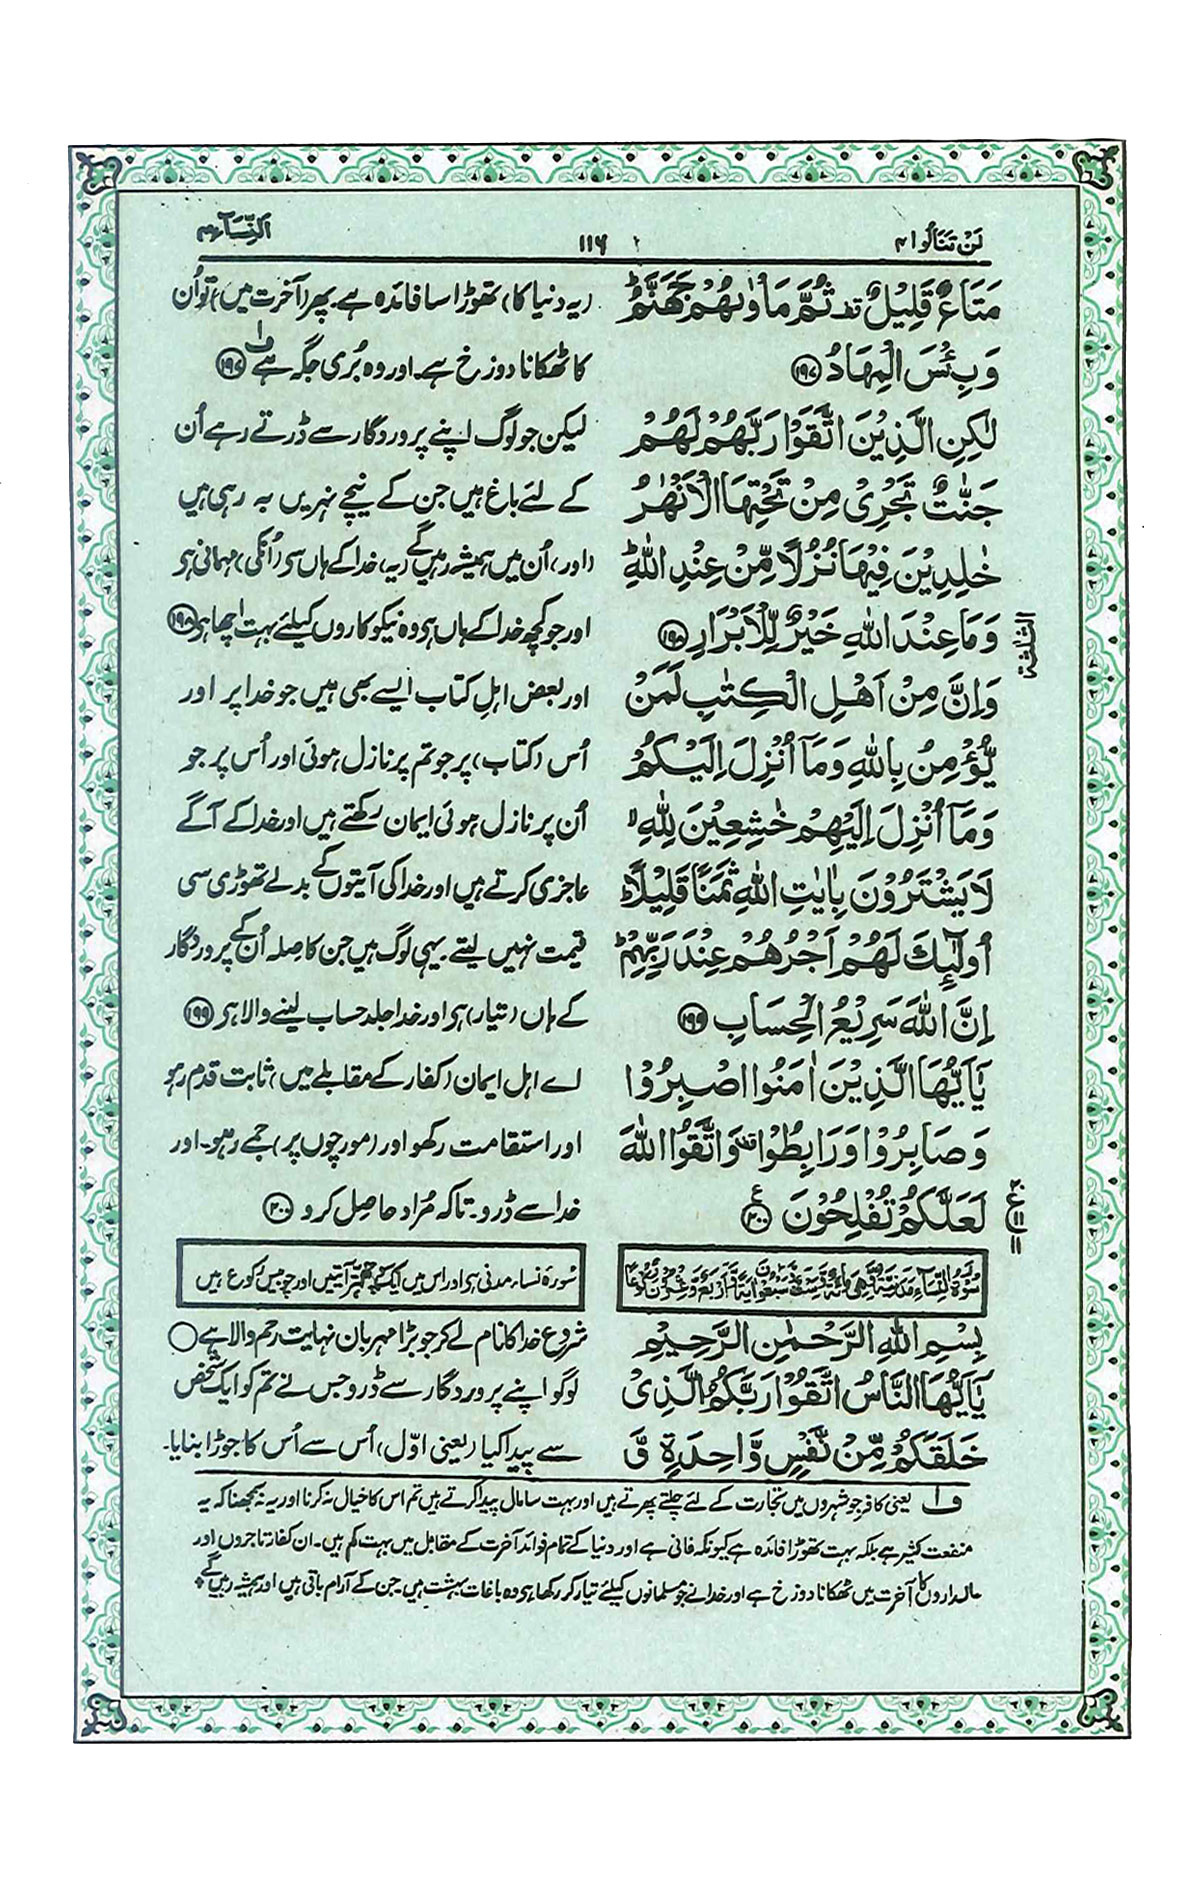 لَنْ تَنَالُوا ۴
۱۱۶
اَلنِّسَآء ۴
مَتَاعٌ قَلِیْلٌ قف ثُمَّ مَاْوٰىهُمْ جَهَنَّمُ ؕ
وَبِئْسَ الْمِهَادُ ﴿۱۹۷﴾
لٰكِنِ الَّذِیْنَ اتَّقَوْا رَبَّهُمْ لَهُمْ
جَنّٰتٌ تَجْرِیْ مِنْ تَحْتِهَا الْاَنْهٰرُ
خٰلِدِیْنَ فِیْهَا نُزُلًا مِّنْ عِنْدِ اللّٰهِ ؕ
وَمَا عِنْدَ اللّٰهِ خَیْرٌ لِّلْاَبْرَارِ ﴿۱۹۸﴾
وَاِنَّ مِنْ اَهْلِ الْكِتٰبِ لَمَنْ
یُّؤْمِنُ بِاللّٰهِ وَمَاۤ اُنْزِلَ اِلَیْكُمْ
وَمَاۤ اُنْزِلَ اِلَیْهِمْ خٰشِعِیْنَ لِلّٰهِ ۙ
لَا یَشْتَرُوْنَ بِاٰیٰتِ اللّٰهِ ثَمَنًا قَلِیْلًا ؕ
اُولٰٓئِكَ لَهُمْ اَجْرُهُمْ عِنْدَ رَبِّهِمْ ؕ
اِنَّ اللّٰهَ سَرِیْعُ الْحِسَابِ ﴿۱۹۹﴾
یٰۤاَیُّهَا الَّذِیْنَ اٰمَنُوا اصْبِرُوْا
وَصَابِرُوْا وَرَابِطُوْا قف وَاتَّقُوا اللّٰهَ
لَعَلَّكُمْ تُفْلِحُوْنَ ﴿۲۰۰﴾ ع
الثلٰثة
ع ۱۱
سُوْرَةُ النِّسَآءِ مَدَنِیَّةٌ وَّهِیَ مِائَةٌ وَّسِتٌّ وَّسَبْعُوْنَ اٰیَةً وَّاَرْبَعٌ وَّعِشْرُوْنَ رُكُوْعًا
بِسْمِ اللّٰهِ الرَّحْمٰنِ الرَّحِیْمِ
یٰۤاَیُّهَا النَّاسُ اتَّقُوْا رَبَّكُمُ الَّذِیْ
خَلَقَكُمْ مِّنْ نَّفْسٍ وَّاحِدَةٍ وَّ
(یہ دنیا کا) تھوڑا سا فائدہ ہے۔ پھر (آخرت میں) تو اُن
کا ٹھکانا دوزخ ہے۔ اور وہ بُری جگہ ہے ف۱ ﴿۱۹۷﴾
لیکن جو لوگ اپنے پروردگار سے ڈرتے رہے اُن
کے لئے باغ ہیں جن کے نیچے نہریں بہ رہی ہیں
(اور) اُن میں ہمیشہ رہیں گے (یہ) خدا کے ہاں سے (اُنکی) مہمانی ہی
اور جو کچھ خدا کے ہاں ہی وہ نیکوکاروں کیلئے بہت اچھا ہی ﴿۱۹۸﴾
اور بعض اہلِ کتاب ایسے بھی ہیں جو خدا پر اور
اُس (کتاب) پر جو تم پر نازل ہوئی اور اُس پر جو
اُن پر نازل ہوئی ایمان رکھتے ہیں اور خدا کے آگے
عاجزی کرتے ہیں اور خدا کی آیتوں کے بدلے تھوڑی سی
قیمت نہیں لیتے۔ یہی لوگ ہیں جن کا صلہ اُن کے پروردگار
کے ہاں (تیار) ہی اور خدا جلد حساب لینے والا ہی ﴿۱۹۹﴾
اے اہل ایمان (کفار کے مقابلے میں) ثابت قدم رہو
اور استقامت رکھو اور (مورچوں پر) جمے رہو۔ اور
خدا سے ڈرو۔ تاکہ مُراد حاصل کرو ﴿۲۰۰﴾
سُورۂ نساء مدنی ہی اور اس میں ایک سو چھہتر آیتیں اور چوبیس رکوع ہیں
شروع خدا کا نام لے کر جو بڑا مہربان نہایت رحم والا ہے ○
لوگو اپنے پروردگار سے ڈرو جس نے تم کو ایک شخص
سے پیدا کیا (یعنی اوّل) اُس سے اُس کا جوڑا بنایا۔
ف۱ یعنی کافر جو شہروں میں تجارت کے لئے چلتے پھرتے ہیں اور بہت سا مال پیدا کرتے ہیں تم اس کا خیال نہ کرنا اور یہ نہ سمجھنا کہ یہ
منفعت کثیر ہے بلکہ بہت تھوڑا فائدہ ہے کیونکہ فانی ہے اور دنیا کے تمام فوائد آخرت کے مقابل میں بہت کم ہیں۔ ان کفار تاجروں اور
مالداروں کا آخرت میں ٹھکانا دوزخ ہے اور خدا نے جو مسلمانوں کیلئے تیار کر رکھا ہی وہ باغات بہشت ہیں۔ جن کے آرام باقی ہیں اور ہمیشہ رہیں گے